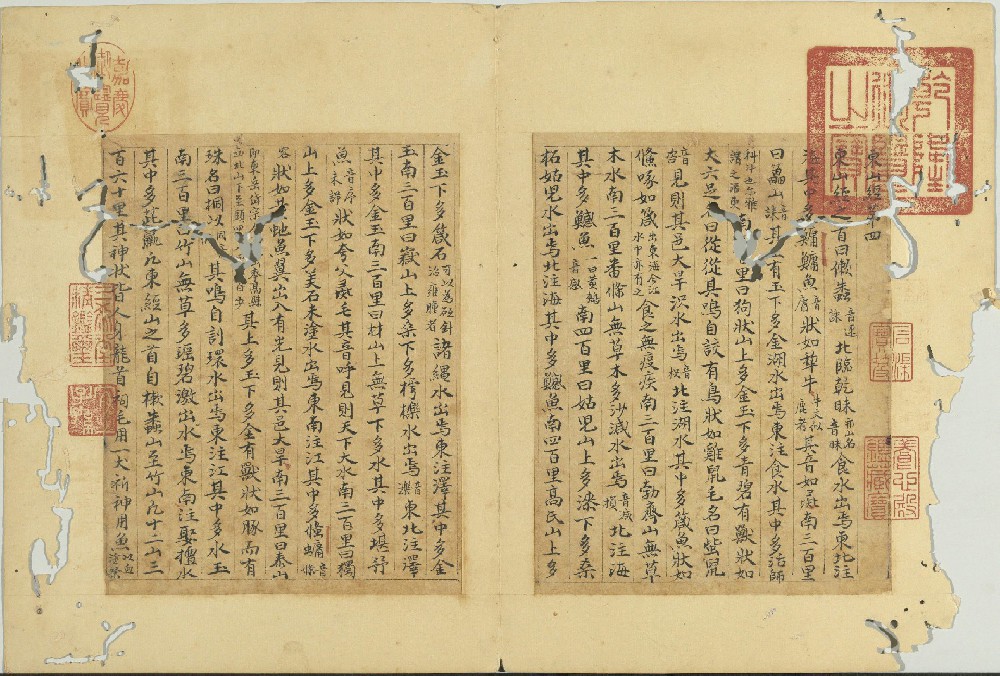 東山經第四
東山經之首曰樕𧑤音速株北臨乾昧亦山名音昧食水出焉東北注
海其中多鱅鱅魚音庸狀如犂牛牛文似虎者其音如彘南三百里
曰藟山音誄其上有玉下多金湖水出焉東注食水其中多活師
科斗也尔雅謂之活東南三百里曰狗狀山上多金玉下多青碧有獸狀如
犬六足名曰從從其鳴自詨有鳥狀如雞鼠毛名曰蚩鼠
音咨見則其邑大旱沢水出焉音枳北注湖水其中多箴魚狀如
儵喙如箴出東海今江水中亦有之食之無疫疾南三百里曰勃齊山無草
木水南三百里番條山無草木多沙減水出焉音減損北注海
其中多鱤魚一曰黃頰音感南四百里曰姑児山上多漆下多桑
柘姑児水出焉北注海其中多鱤魚南四百里高氏山上多
金玉下多箴石可以為砭針治癰腫者諸繩水出焉東注澤其中多金
玉南三百里曰嶽山上多桑下多樗櫟水出焉音濼東北注澤
其中多金玉南三百里曰犲山上無草下多水其中多堪㐨
魚音序未詳狀如夸父彘毛其音呼見則天下大水南三百里曰獨
山上多金玉下多美石末塗水出焉東南注江其中多䖺䗤音條
容狀如黃虵魚翼出入有光見則其邑大旱南三百里曰泰山
即東岳岱宗其上多玉下多金有獸狀如豚而有
珠名曰狪狪音同其鳴自訆環水出焉東注江其中多水玉
南三百里曰竹山無草多瑶碧激水出焉東南注娶檀水
其中多茈羸凡東經山之首自樕𧑤山至竹山凡十二山三
百六十里其神狀皆人身龍首祠毛用一犬祈神用魚以血塗祭
嘉慶御覽之寶